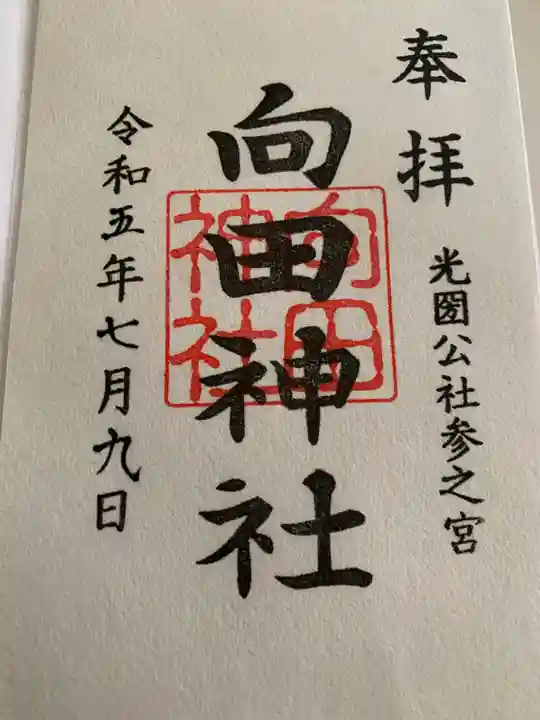 奉拝
光圀公社参之宮
向田神社
向田神社
令和五年七月九日